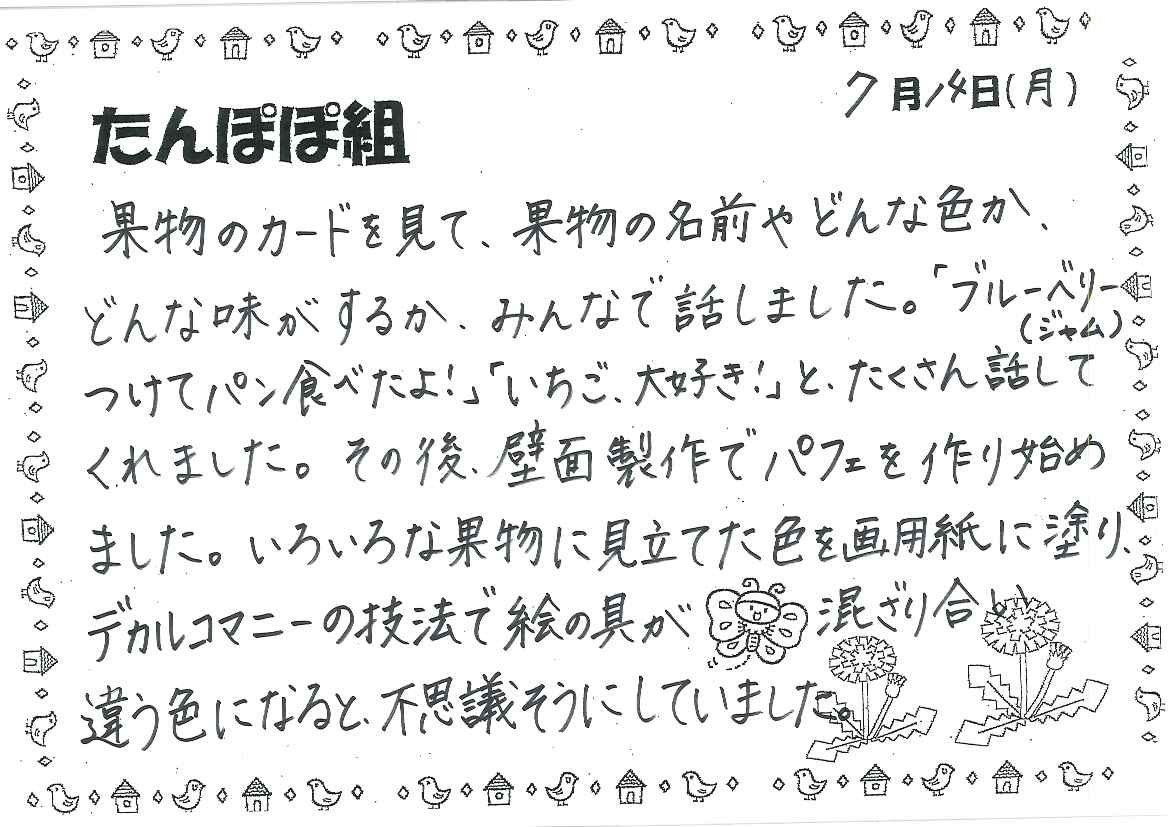 7月14日(月)
たんぽぽ組
果物のカードを見て、果物の名前やどんな色か、
どんな味がするか、みんなで話しました。「ブルーベリー
(ジャム)
つけてパン食べたよ!」「いちご、大好き!」と、たくさん話して
くれました。その後、壁面製作でパフェを作り始め
ました。いろいろな果物に見立てた色を画用紙に塗り、
デカルコマニーの技法で絵の具が混ざり合い
違う色になると、不思議そうにしていました。